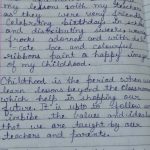 my lessons with my teacher
as they were my friends
Celebrating birthdays in school
and distributing sweets wearing
frocks adorned with
cute lace and colourful
ribbons paint a happy image
of my childhood.
Childhood is the period when we
learn lessons beyond the classroom
which help in shaping our
future. It is upto us to follow
imbibe the values and ideals
that we are taught by our
teachers and parents.